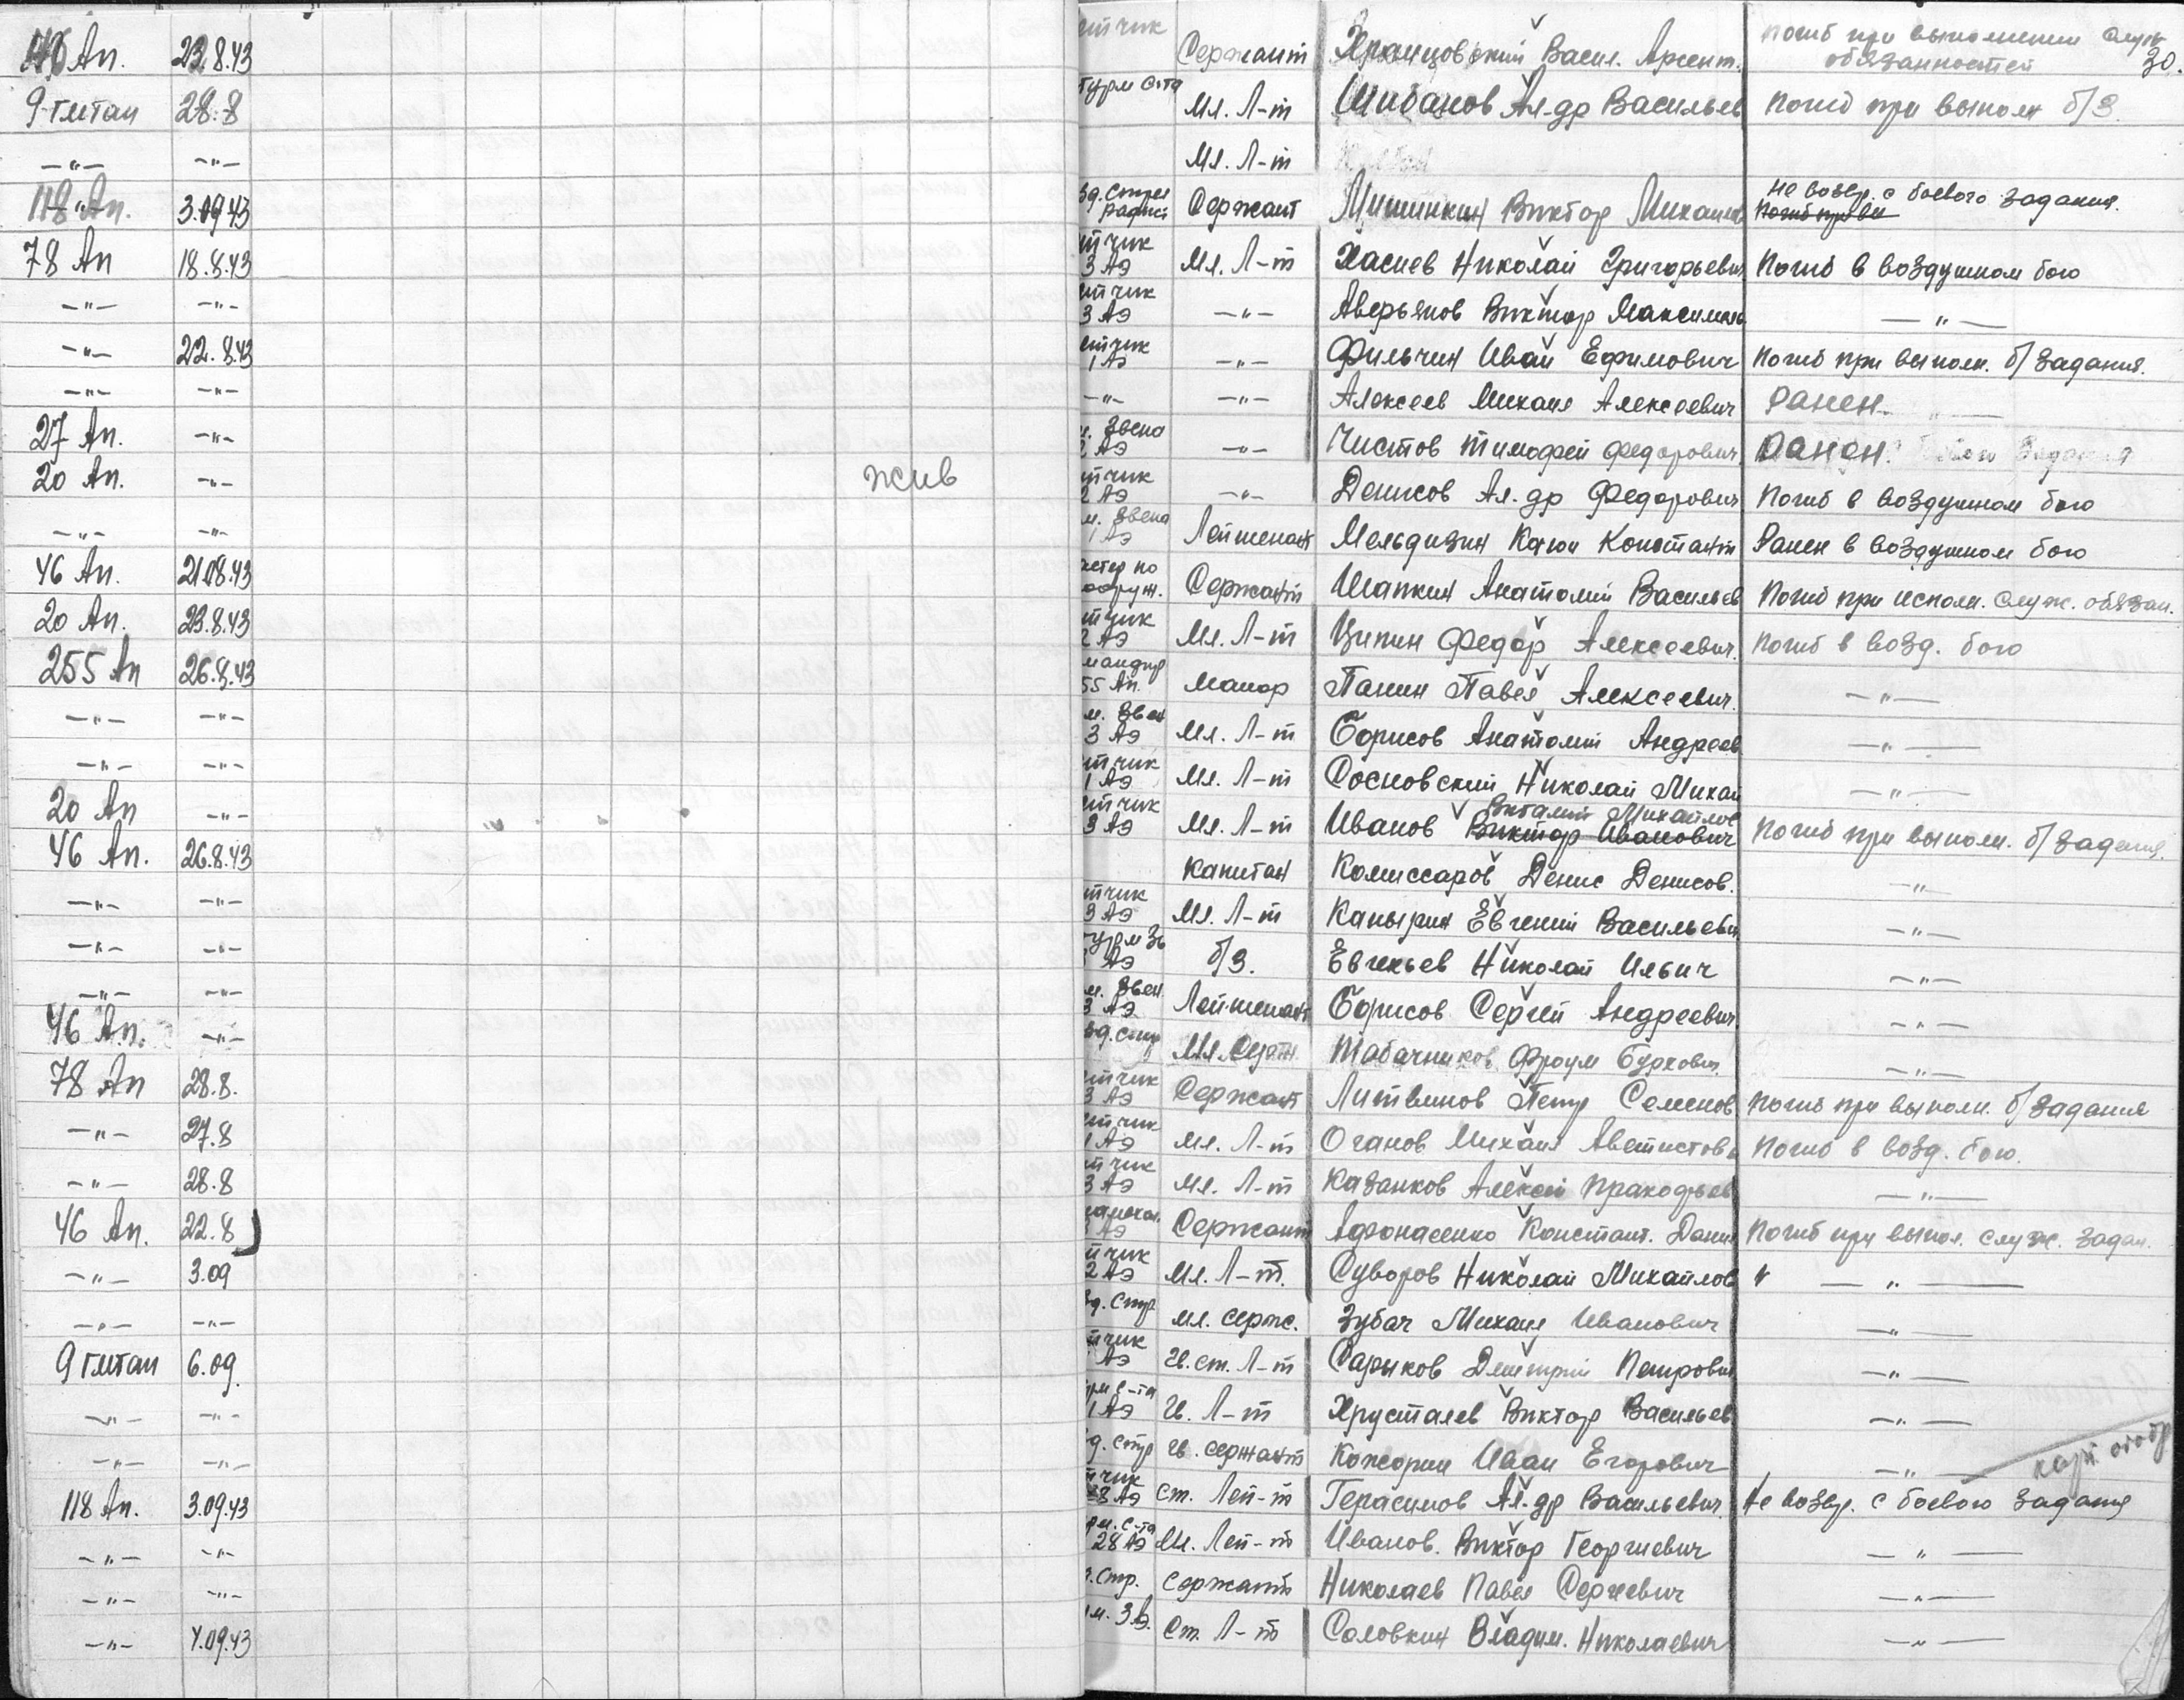 46 Ап. 23.8.43
9 гмтап 28.8
—"— —"—
118 Ап. 3.09.43
78 Ап 18.8.43
—"— —"—
—"— 22.8.43
—"— —"—
27 Ап. —"—
20 Ап. —"— жив
—"— —"—
46 Ап. 21.08.43
20 Ап. 23.8.43
255 Ап 26.8.43
—"— —"—
—"— —"—
20 Ап —"—
46 Ап. 26.8.43
—"— —"—
—"— —"—
—"— —"—
46 Ап. —"—
78 Ап 28.8.
—"— 27.8
—"— 28.8
46 Ап. 22.8
—"— 3.09
—"— —"—
9 гмтап 6.09.
—"— —"—
—"— —"—
118 Ап. 3.09.43
—"— —"—
—"— —"—
—"— 4.09.43
30.
тчик Сержант Васил. Арсент. Погиб при выполнении служ
обязанностей
Мл. Л-т Шибанов Ал-др Васильев Погиб при выполн б/З.
Мл. Л-т
Сержант Виктор Михаил Не возвр. с боевого задания.
тчик
3 АЭ Мл. Л-т Хасиев Николай Григорьевич Погиб в воздушном бою
тчик
3 АЭ —"— Аверьянов Виктор Максимов —"—
етчик
1 АЭ —"— Фильчин Иван Ефимович Погиб при выполн. б/задания.
—"— —"— Алексеев Михаил Алексеевич Ранен —"—
м. Звена
2 АЭ —"— Чистов Тимофей Федорович Ранен.
тчик
2 АЭ —"— Денисов Ал-др Федорович Погиб в воздушном бою
м. Звена
1 АЭ Лейтенант Константи Ранен в воздушном бою
астер по
вооруж. Сержант Шапкин Анатолий Васильев Погиб при исполн. служ. обязан.
тчик
2 АЭ Мл. Л-т Ципин Федор Алексеевич. Погиб в возд. бою
мандир
55 Ап. Майор Панин Павел Алексеевич. —"—
м. Звен
3 АЭ Мл. Л-т Борисов Анатолий Андреев —"—
тчик
1 АЭ Мл. Л-т Сосновский Николай Михай —"—
етчик Виталий Михайлов
3 АЭ Мл. Л-т Иванов Виктор Иванович Погиб при выполн. б/задания.
Капитан Комиссаров Денис Денисов. —"—
тчик
3 АЭ Мл. Л-т Капырин Евгений Васильеви —"—
АЭ б/З. Николай Ильич —"—
м. Звен.
3 АЭ Лейтенант Борисов Сергей Андреевич —"—
Мл. Серж. Табачников Фроим Бурхович —"—
етчик
3 АЭ Сержант Литвинов Петр Семенов Погиб при выполн. б/задания
етчик
1 АЭ Мл. Л-т Оганов Михаил Аветистов Погиб в возд. бою.
тчик
3 АЭ Мл. Л-т Казанков Алексей Прокофьев —"—
Сержант Афонасенко Констант. Дани Погиб при выпол. служ. задан.
тчик
2 АЭ Мл. Л-т. Суворов Николай Михайлов " —"—
зд. Стр мл. серж. Зубач Михаил Иванович —"—
тчик
АЭ Гв. ст. Л-т Сарыков Дмитрий Петрович —"—
1 АЭ Гв. Л-т Хрусталев Виктор Васильев —"—
зд. Стр гв. сержант Кокорин Иван Егорович —"—
тчик
АЭ Ст. Лей-т Герасимов Ал-др Васильевич Не возвр. с боевого задания
28 АЭ Мл. Лей-т Иванов. Виктор Георгиевич —"—
Стр. Сержант Николаев Павел Сергеевич —"—
Ст. Л-т Соловкин Владим. Николаевич —"—